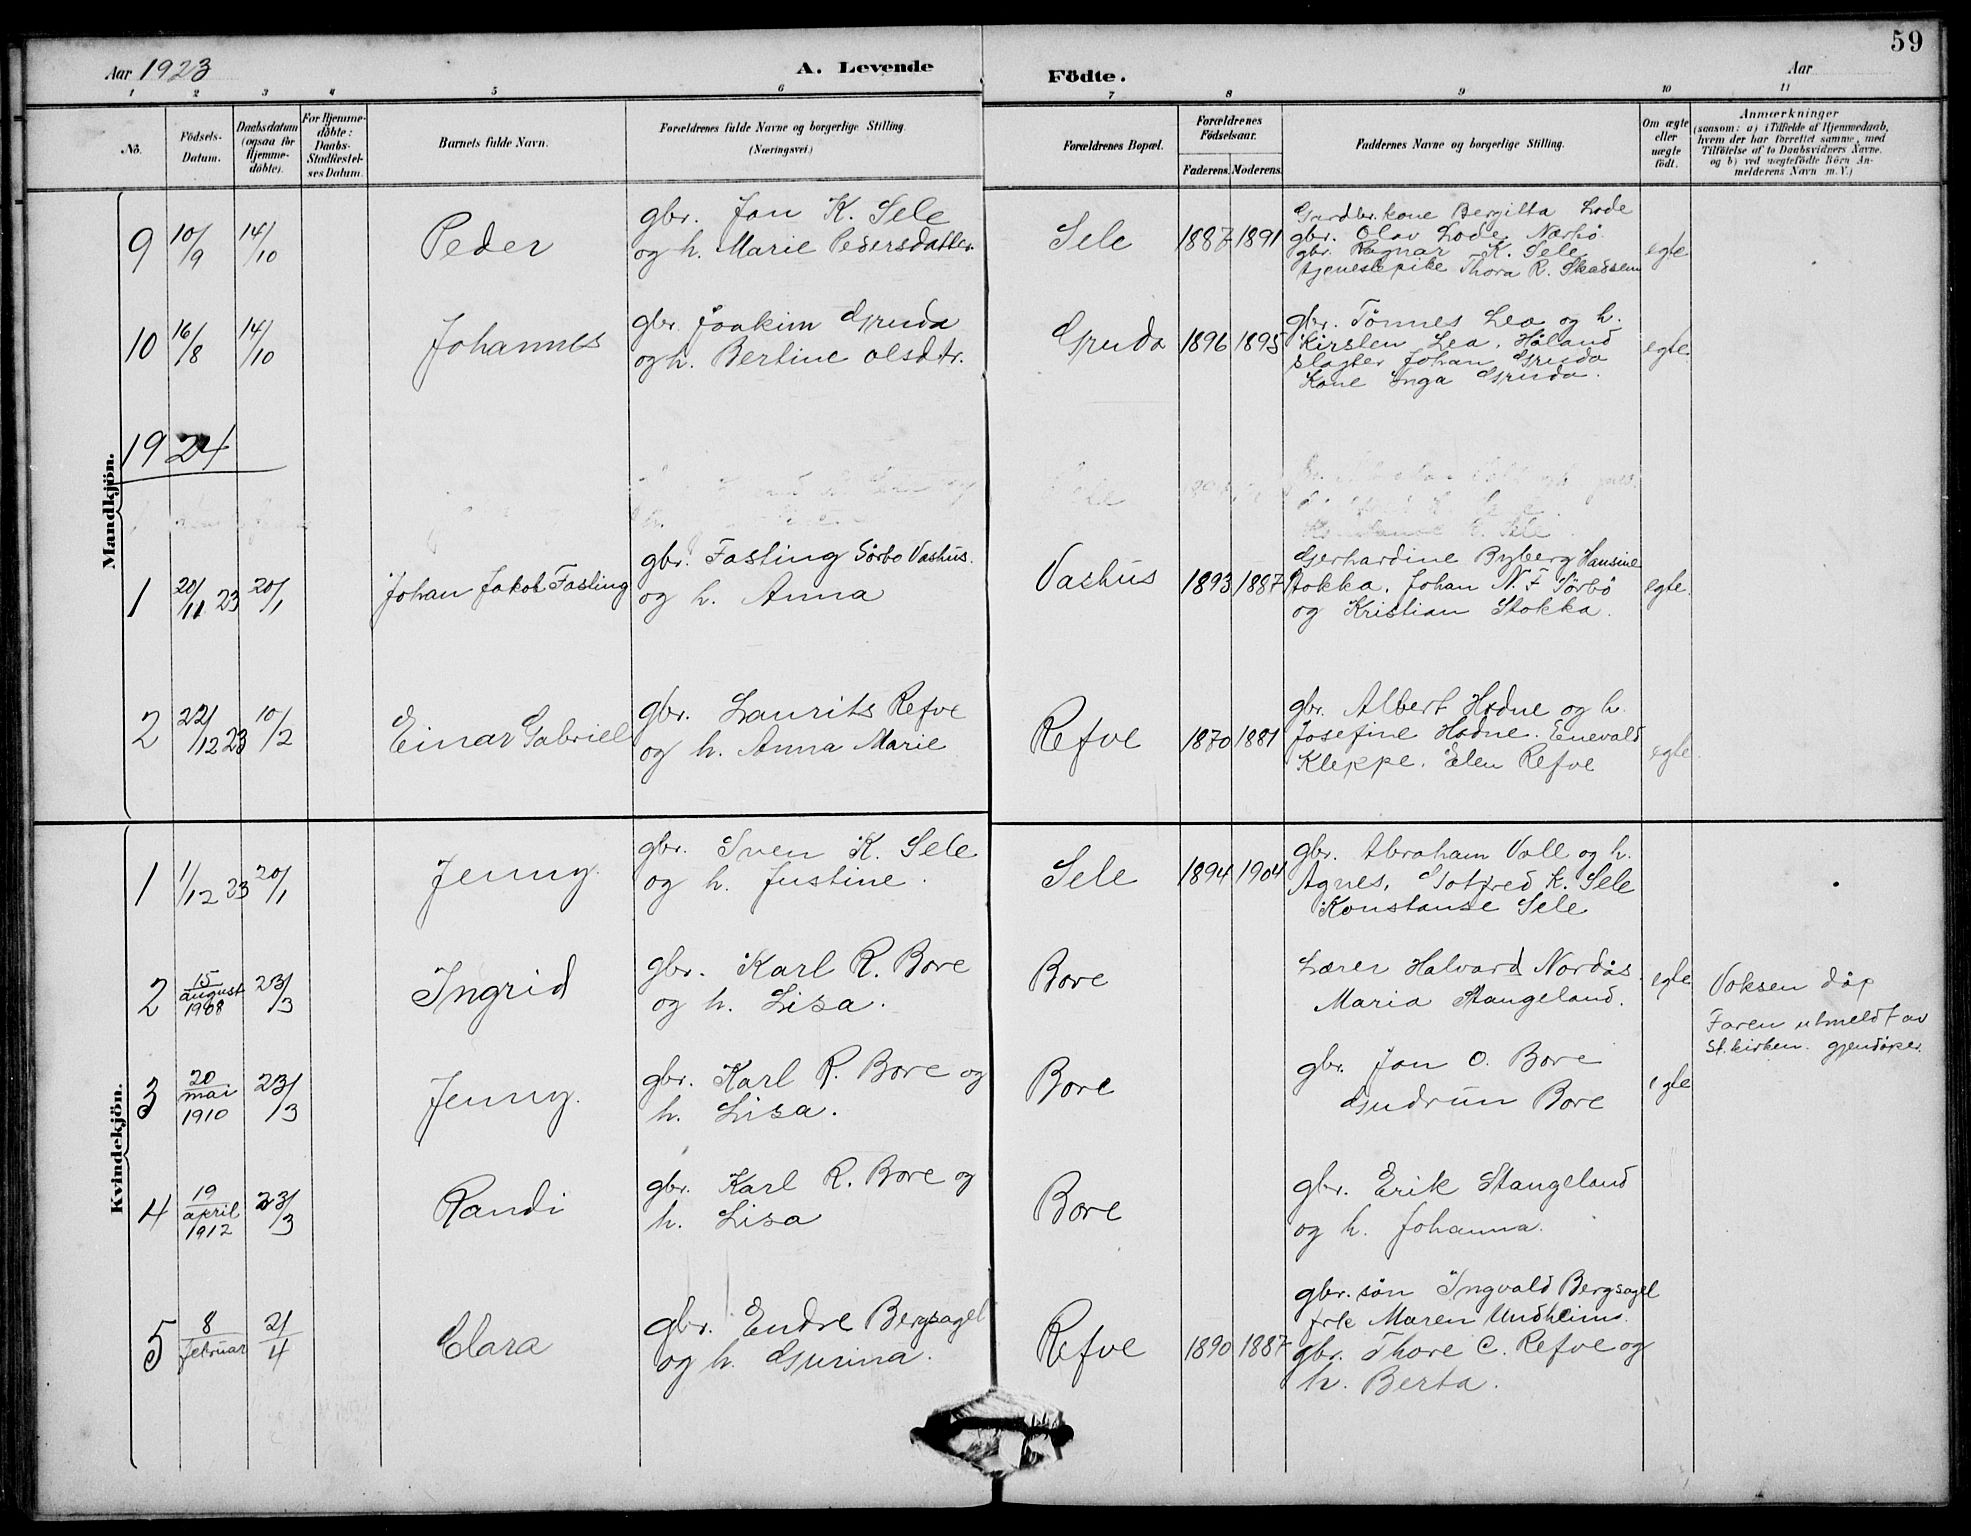 59
Aar 1923
A. Levende
Födte.
Aar
1 2 3 4 5 6 7 8 9 10 11
No.
Födsels-
Datum.
Daabsdatum
(ogsaa for
Hjemme-
döbte).
For Hjemme-
döbte:
Daabs-
Stadfæstel-
ses Datum.
Barnets fulde Navn.
Forældrenes fulde Navne og borgerlige Stilling.
(Næringsvei.)
Forældrenes Bopæl.
Forældrenes
Födselsaar.
Faderens. Moderens.
Faddernes Navne og borgerlige Stilling.
Om ægte
eller
uægte
födt.
Anmærkninger
(saasom: a) i Tilfælde af Hjemmedaab,
hvem der har forrettet samme, med
Tilföielse af to Daabsvidners Navne.
og b) ved uægtefödte Börn An-
melderens Navn m. V.)
Mandkjön.
9 10/9 14/10 Peder
gbr. Jon K. Sele
og h. Marie Pedersdatter
Sele 1887 1891
Gardbr. kone Bergitta Lode
gbr. Olav Lode Nærbö
gbr. Ragnar K. Sele
tjenestepike Thora R. Skadsem
egte
10 16/8 14/10 Johannes
gbr. Joakim Gruda
og h. Bertine Olsdtr.
Gruda 1896 1895
gbr. Tönnes Lea og h.
Kirsten Lea. Håland
slagter Johan Gruda
Kone Inga Gruda.
egte.
1924
Sele
Konstanse K. Sele
1 20/11 23 20/1 Johan Jakob Fasting
gbr. Fasting Sörbö Vashus.
og h. Anna
Vashus 1893 1887
Gjerhardine Byberg Hansine
Stokka. Johan N. F Sörbö
og Kristian Stokka.
egte.
2 22/12 23 10/2 Einar Gabriel
gbr. Laurits Refve
og h. Anna Marie
Refve 1870 1881
gbr. Albert Hodne og h.
Josefine Hodne. Enevald
Kleppe. Elen Refve
egte.
Kvindekjön.
1 1/12 23 20/1 Jenny.
gbr. Sven K. Sele
og h. Justine.
Sele 1894 1904
gbr. Abraham Voll og h.
Agnes, Gotfred K. Sele
Konstanse Sele
2 15 august 1908 23/3 Ingrid
gbr. Karl R. Bore
og h. Lisa.
Bore
Lærer Halvard Nordås
Maria Stangeland.
egte
Voksen dåp
Faren utmeldt av
st.kirken. gjendöper.
3 20 mai 1910 23/3 Jenny.
gbr. Karl R. Bore og
h. Lisa.
Bore
gbr. Jon O. Bore
Gudrun Bore
egte
4 19 april 1912 23/3 Randi
gbr. Karl R. Bore og
h. Lisa
Bore
gbr. Erik Stangeland
og h. Johanna.
5 8 februar 21/4 Clara
gbr. Endre Bergsagel
og h. Gurina.
Refve 1890 1887
gbr. sön Ingvald Bergsagel
frk Maren Undheim.
gbr. Thore C. Refve og
h. Berta.